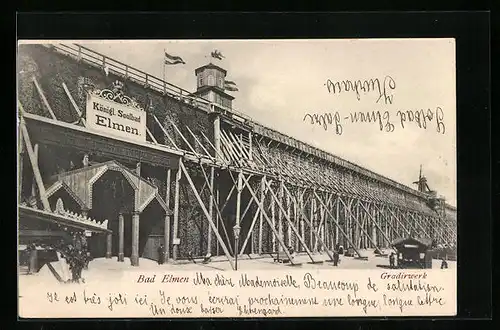 Königl. Soolbad
Elmen.
Kurhaus.
Solbad Elmen-Salze
Bad Elmen
Gradirwerk
Ma chère Mademoiselle! Beaucoup de salutation.
Ic est très joli ici. Je vous écrirai prochainement une longue, longue lettre.
Un doux baiser